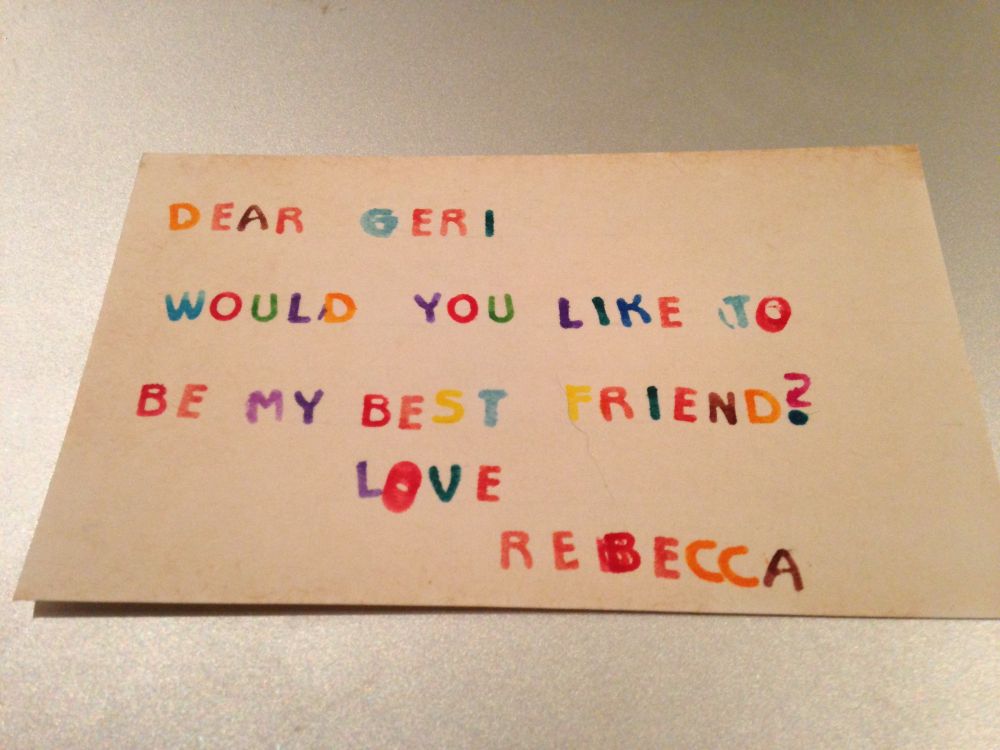 DEAR GERI
WOULD YOU LIKE TO
BE MY BEST FRIEND?
LOVE
REBECCA